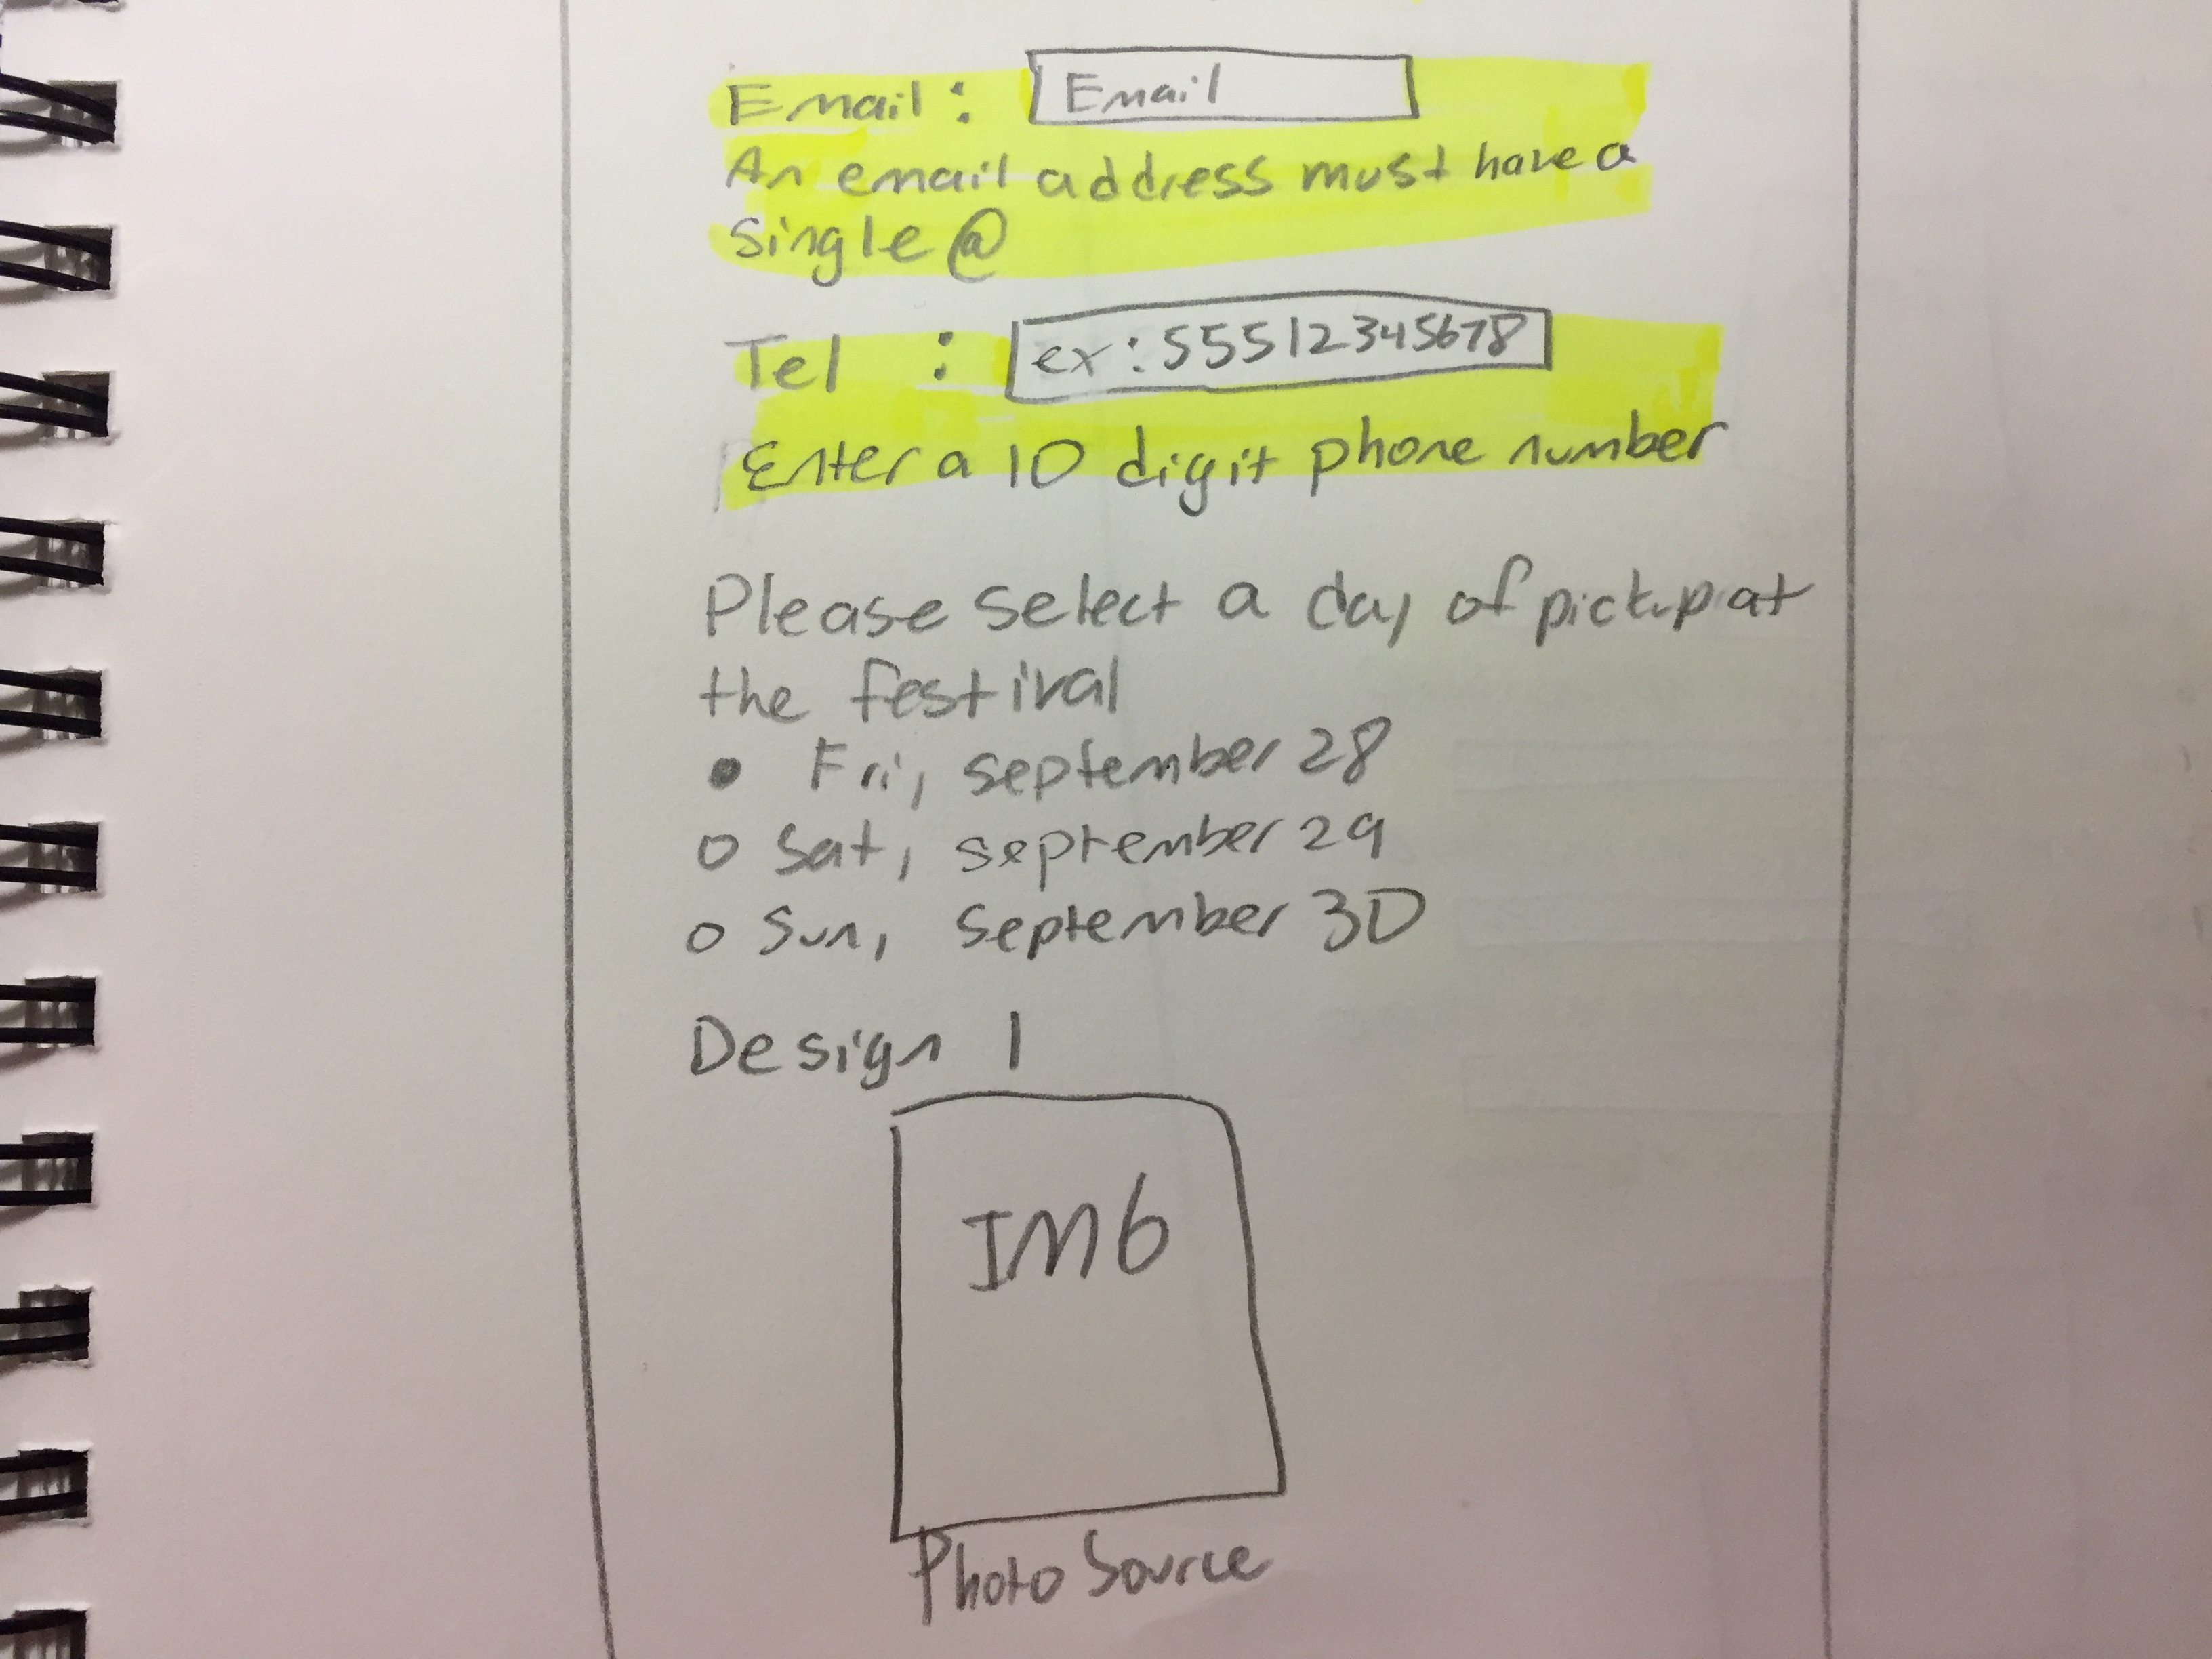 Email: Email
An email address must have a
single @
Tel : ex: 55512345678
Enter a 10 digit phone number
Please select a day of pickup at
the festival
Fri, september 28
Sat, september 29
Sun, September 30
Design 1
IMG
Photo Source